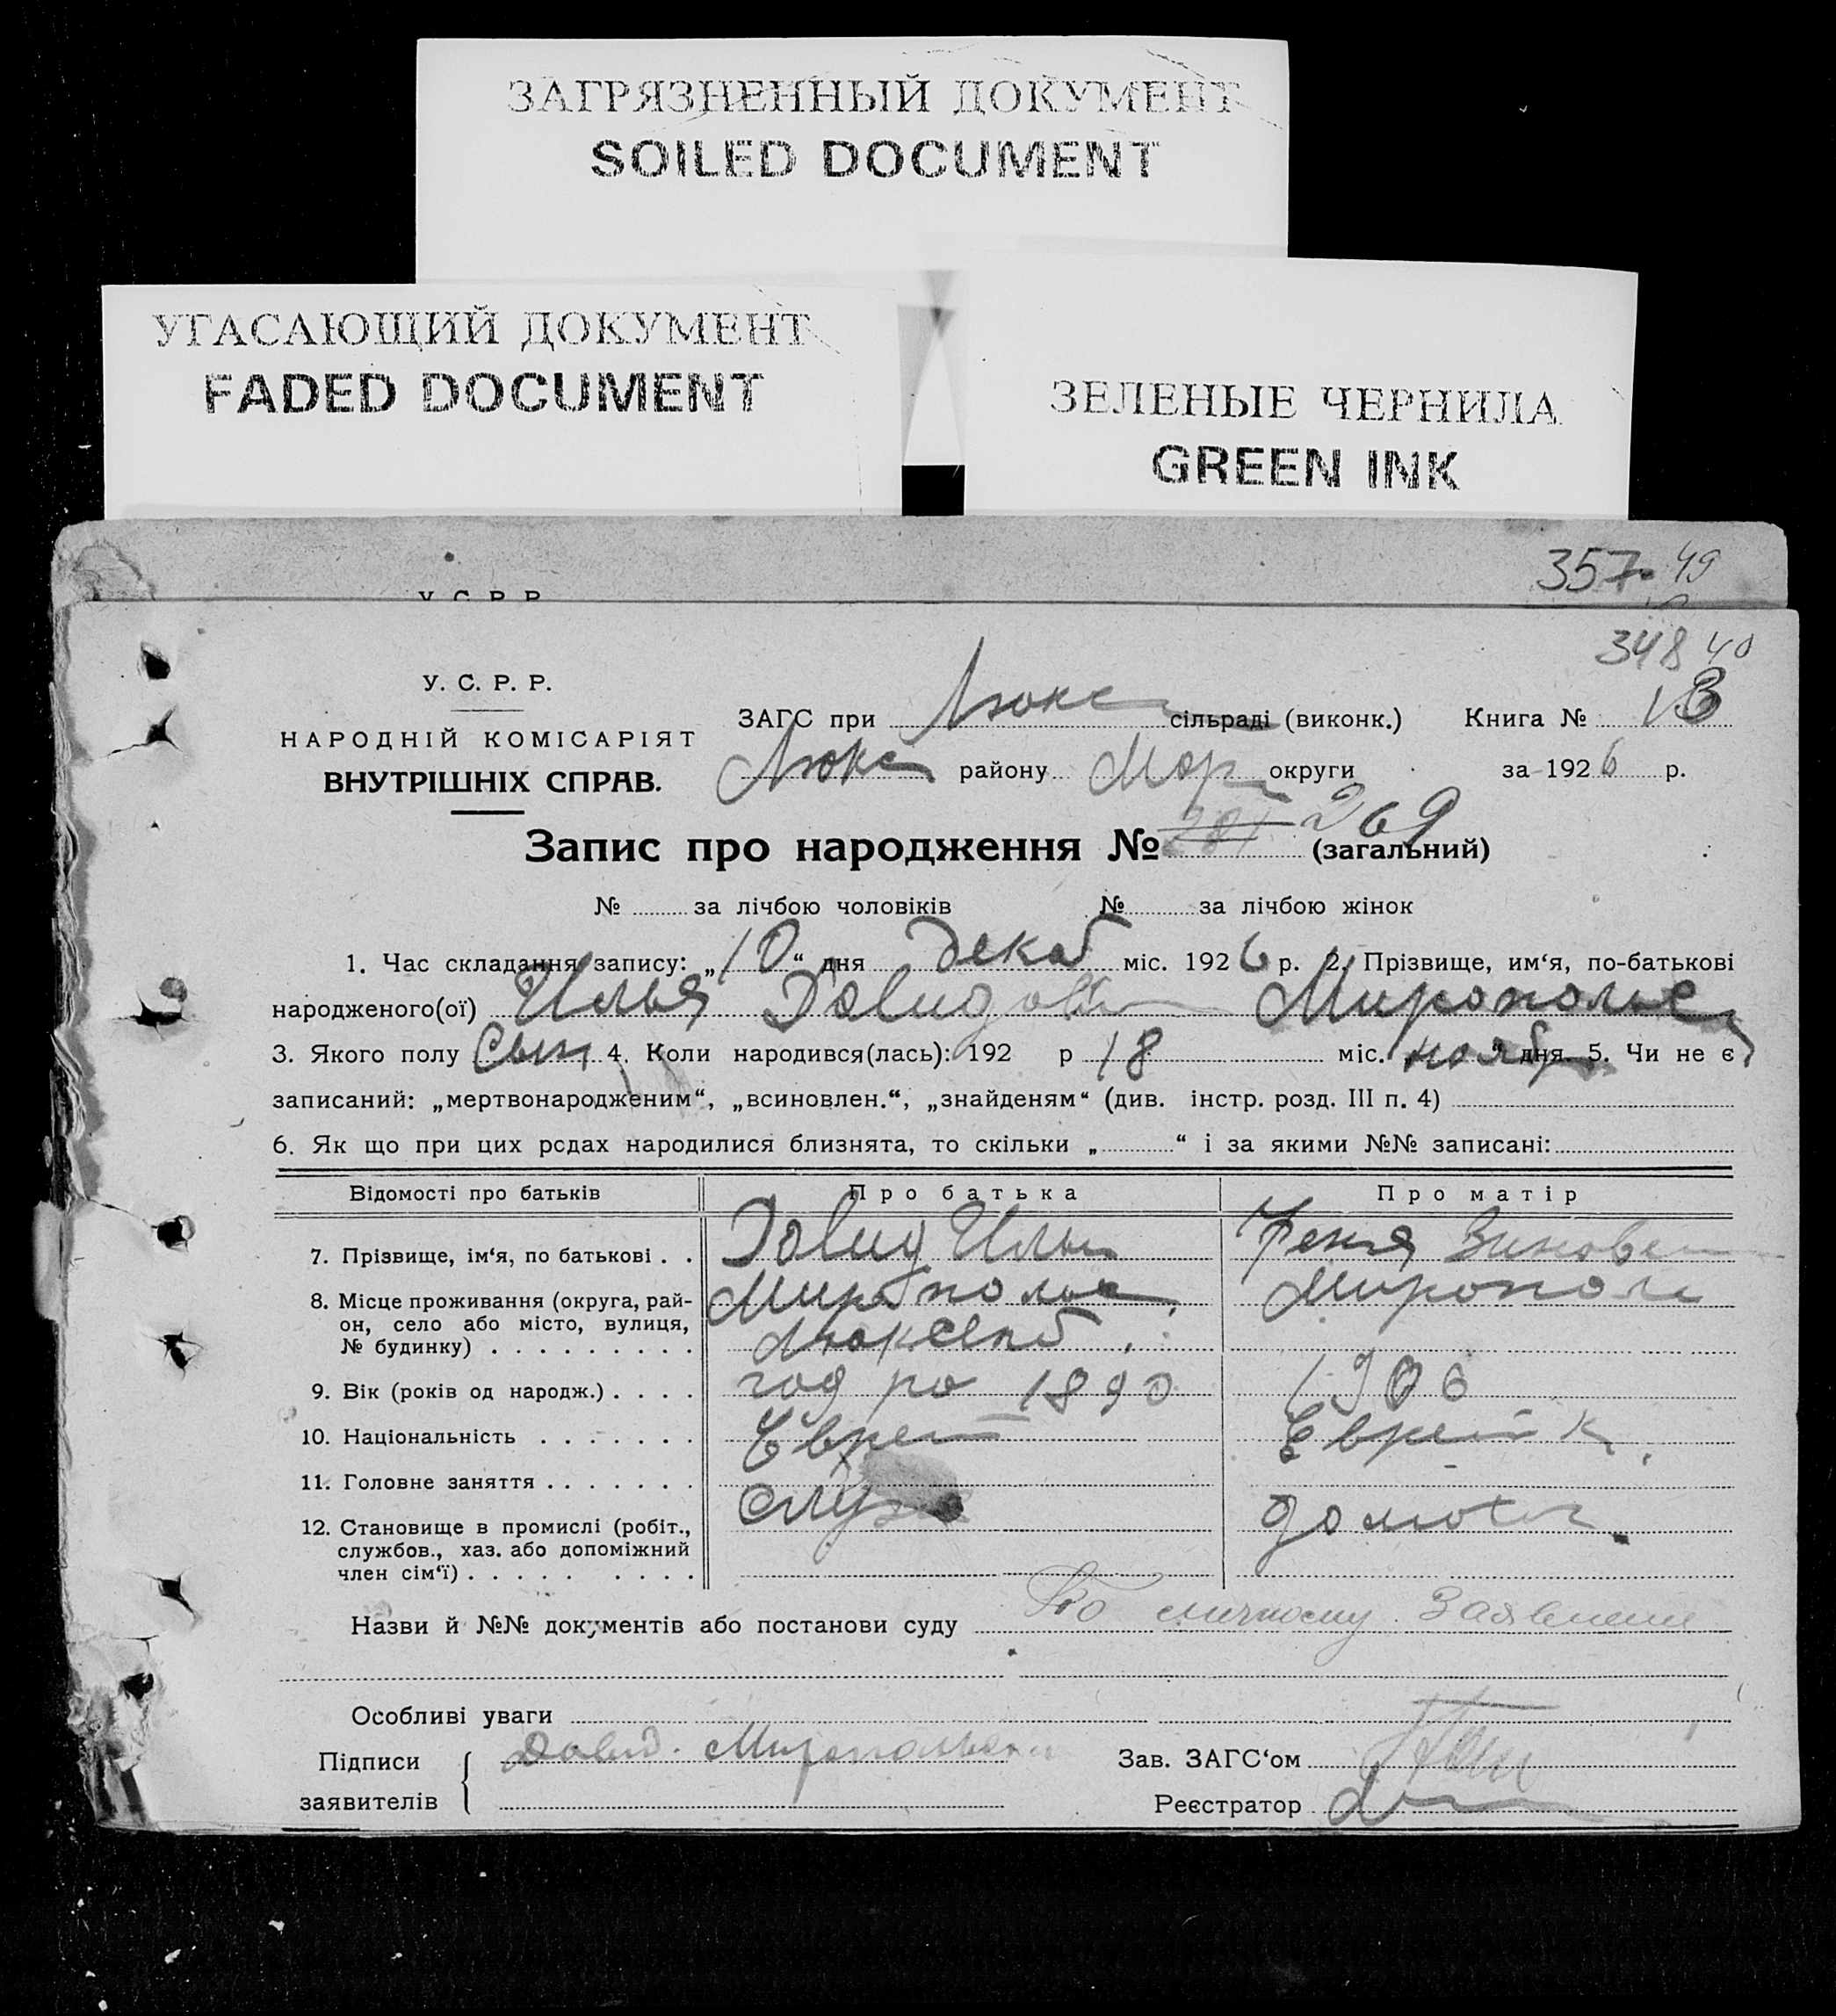 ЗАГРЯЗНЕННЫЙ ДОКУМЕНТ
SOILED DOCUMENT
УГАСАЮЩИЙ ДОКУМЕНТ
FADED DOCUMENT
ЗЕЛЕНЫЕ ЧЕРНИЛА
GREEN INK
357 49
У. С. Р. Р.
348 40
У. С. Р. Р.
НАРОДНІЙ КОМІСАРІЯТ
ВНУТРІШНІХ СПРАВ.
ЗАГС при Люкс сільраді (виконк.) Книга № 13
Люкс району Мар округи за 1926 р.
Запис про народження № 281 269 (загальний)
№ за лічбою чоловіків № за лічбою жінок
1. Час складання запису: „10“ дня декаб міс. 1926 р. 2. Прізвище, им‘я, по-батькові
народженого(ої) Илья Давидов Миропольс
3. Якого полу Сын 4. Коли народився(лась): 192 р 18 міс. „нояб“ дня. 5. Чи не є
записаний: „мертвонародженим“, „всиновлен.“, „знайденям“ (див. інстр. розд. III п. 4)
6. Як що при цих рсдах народилися близнята, то скільки „ “ і за якими №№ записані:
Відомості про батьків Про батька Про матір
7. Прізвище, ім‘я, по батькові . . Давид Ильи Феня Зиновье
8. Місце проживання (округа, рай-
он, село або місто, вулиця,
№ будинку) . . . . . . . . . Мирополь Миропол
9. Вік (років од народж.) . . . . год ро 1890 1906
10. Національність . . . . . . . Еврей Еврейк
11. Головне заняття . . . . . . .
12. Становище в промислі (робіт.,
службов., хаз. або допоміжний
член сім‘ї) . . . . . . . . . служ домохоз
Назви й №№ документів або постанови суду По личному Заявлению
Особливі уваги
Підписи
заявителів Давид. Миропольск
Зав. ЗАГС‘ом
Реєстратор